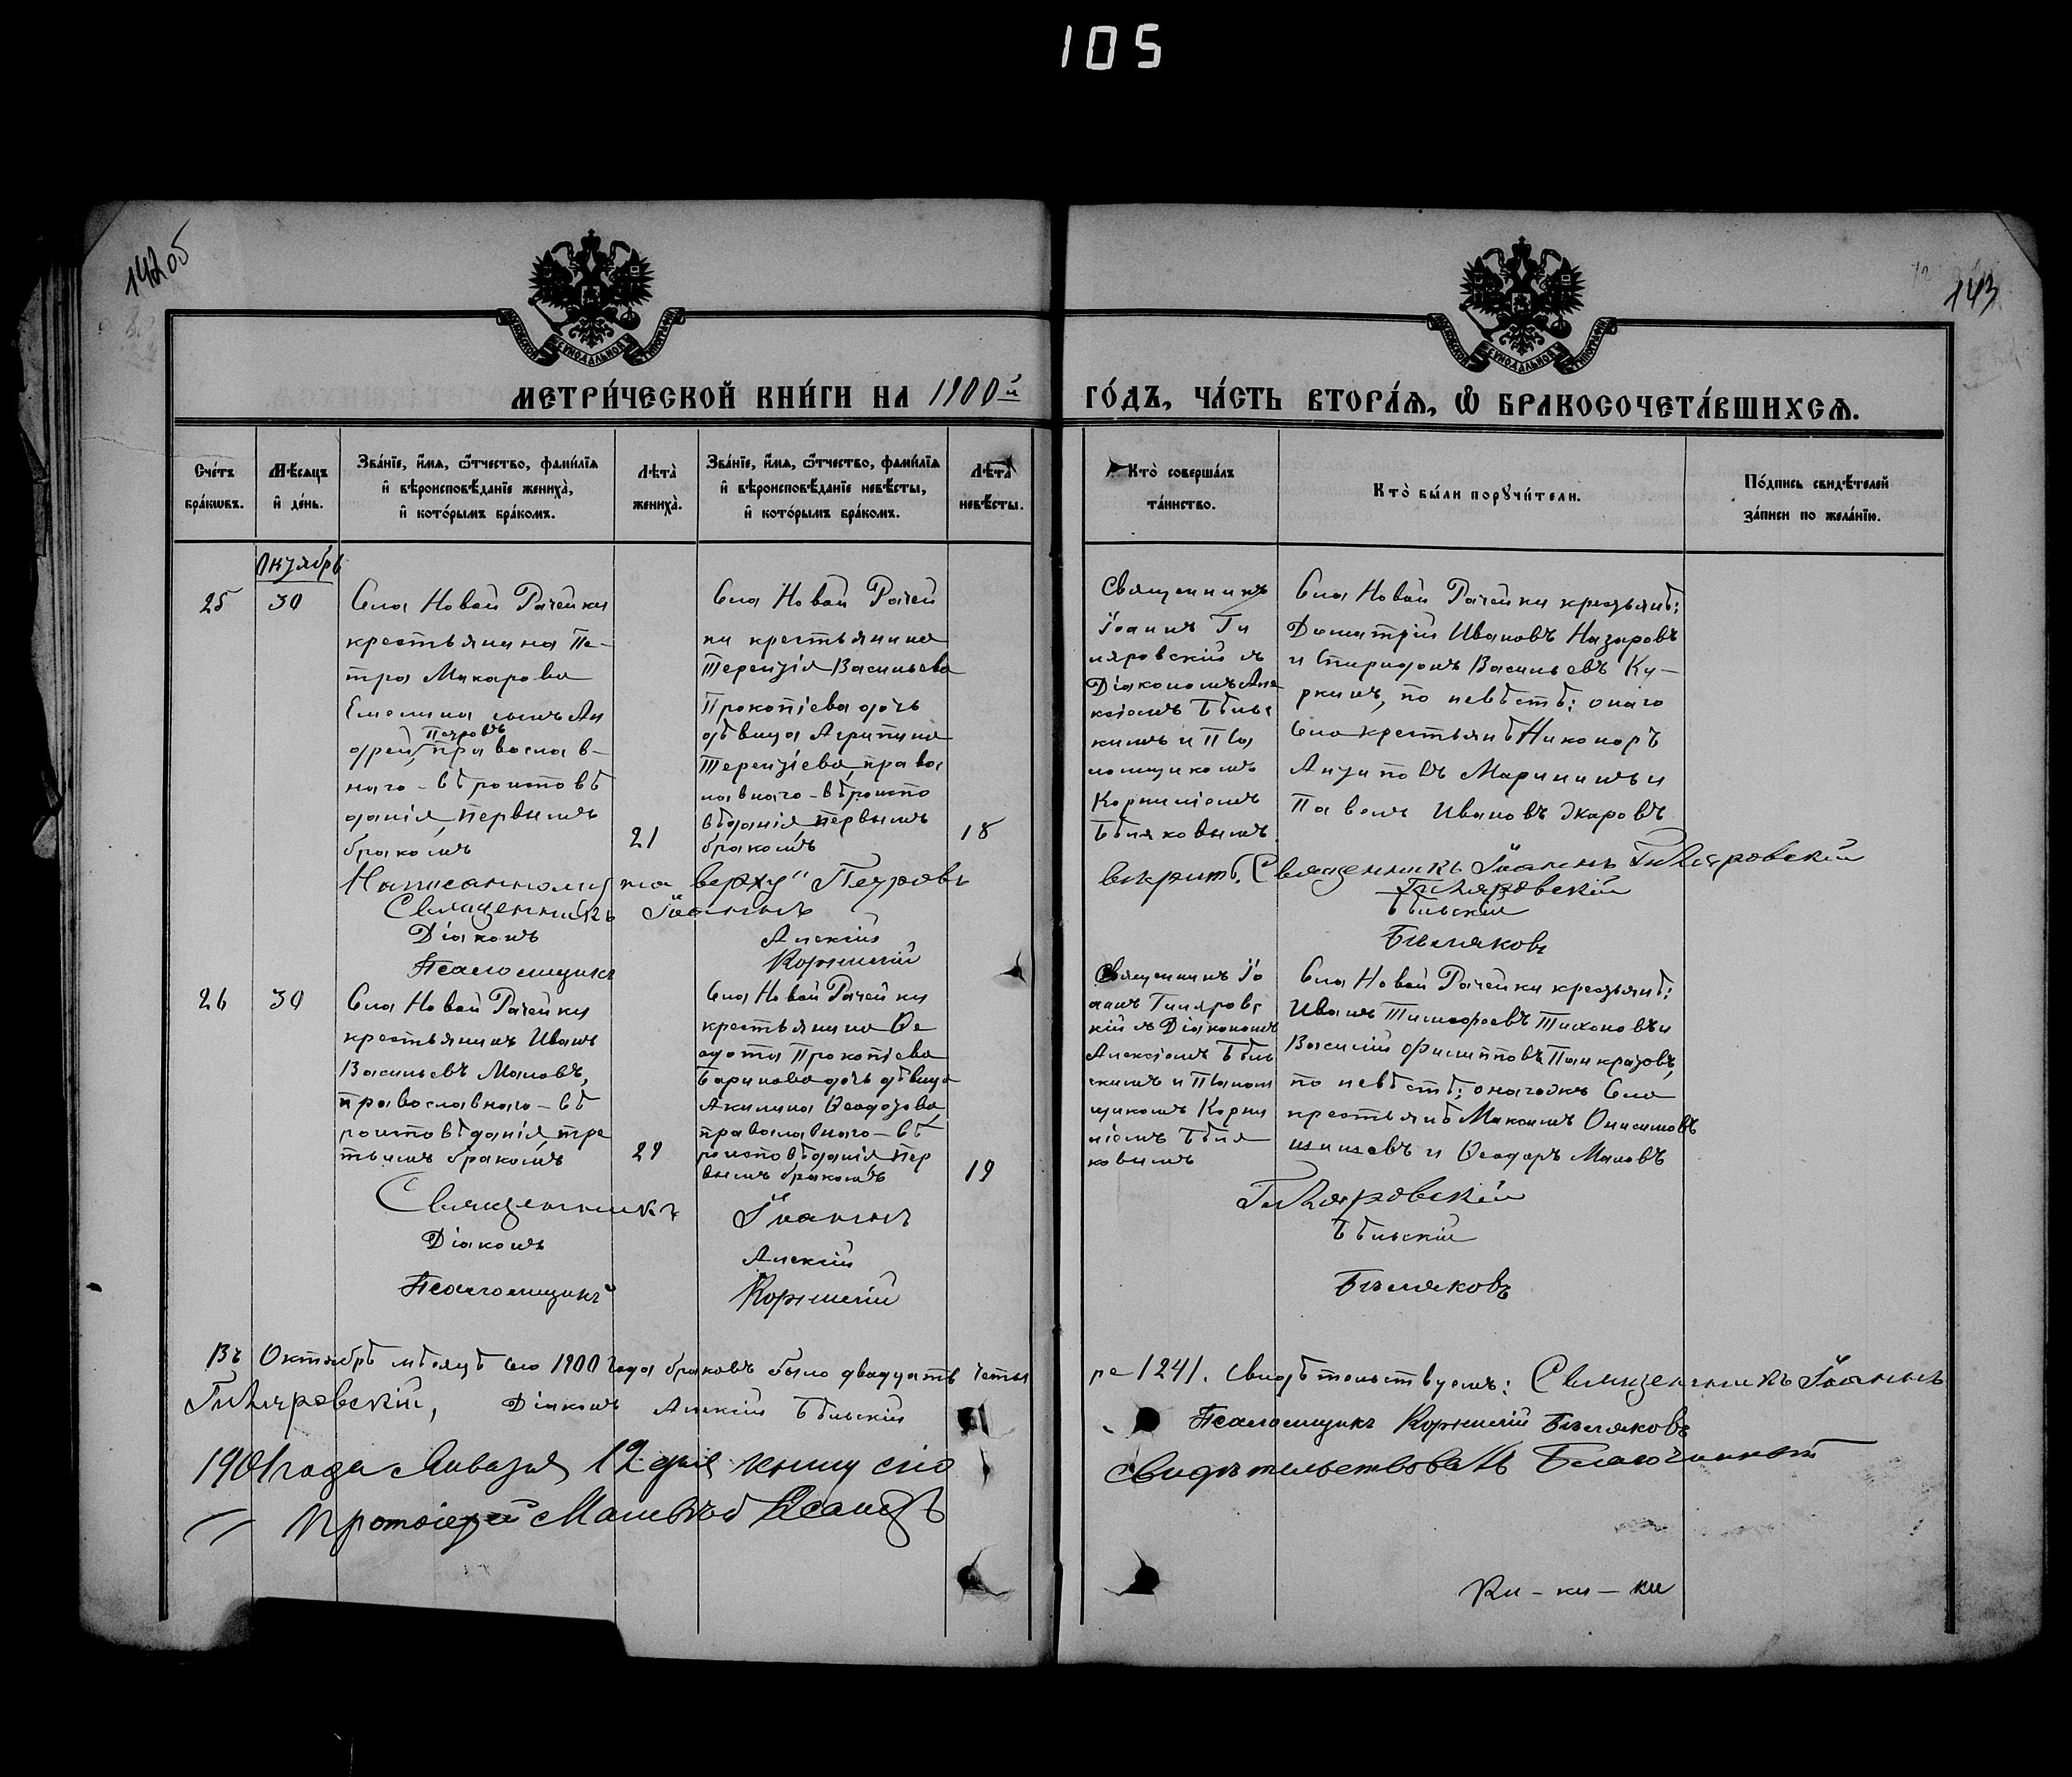 105
142 об
143
МОСКОВСКОЙ СѴНОДАЛЬНОЙ ТИПОГРАФІИ
МОСКОВСКОЙ СѴНОДАЛЬНОЙ ТИПОГРАФІИ
МЕТРИ́ЧЕСКОЙ КНИ́ГИ НА 1900й ГО́ДЪ, ЧА́СТЬ ВТОРА́Ѧ, Ѡ҆ БРАКОСОЧЕТА́ВШИХСѦ.
Сче́тъ бра́кѡвъ.
Мѣ́сѧцъ и҆ де́нь.
Зва́нїе, и҆́мѧ, ѻ҆́тчество, фами́лїѧ
и҆ вѣроисповѣ́данїе жениха̀,
и҆ кото́рымъ бра́комъ.
Лѣта̀ жениха̀.
Зва́нїе, и҆́мѧ, ѻ҆́тчество, фами́лїѧ
и҆ вѣроисповѣ́данїе невѣ́сты,
и҆ кото́рымъ бра́комъ.
Лѣта̀ невѣ́сты.
Кто̀ соверша́лъ та́инство.
Кто̀ бы́ли порꙋчи́тели.
По́дпись свидѣ́телей
за́писи по жела́нїю.
Октябрь
25
30
Села Новой Рачейки
крестьянина Пе-
тра Макарова
Емелина сынъ Ан
Петровъ
дрей, православ-
наго-вѣроисповѣ
данія, первымъ
бракомъ
21
Села Новой Рачей
ки крестьянина
Терентія Васильева
Прокопіева дочь
дѣвица Агрипина
Терентіева, правос
лавнаго-вѣроиспо
вѣданія, первымъ
бракомъ
18
Священникъ
Іоаннъ Ги
ляровскій съ
Діакономъ Але
ксіемъ Бѣльс
кимъ и Пса
ломщикомъ
Корниліемъ
Бѣляковымъ
Села Новой Рачейки крестьянѣ:
Димитрій Ивановъ Назаровъ
и Спиридонъ Васильевъ Ку-
ркинъ, по невѣстѣ: онаго
села крестьянѣ Никоноръ
Антиповъ Марининъ и
Павелъ Ивановъ Жаровъ
Написанному на верху "Петровъ
вѣрить. Священникъ Іоаннъ Гиляровскій
Священникъ Іоаннъ Гиляровскій
Діаконъ Алексій Бѣльскій
Псаломщикъ Корнилій Бѣляковъ
26
30
Села Новой Рачейки
крестьянинъ Иванъ
Васильевъ Маловъ,
православнаго-вѣ
роисповѣданія, тре
тьимъ бракомъ
29
Села Новой Рачейки
крестьянина Ѳе
дота Прокопіева
Баринова дочь дѣвица
Акилина Ѳеодотова,
православнаго-вѣ
роисповѣданія пер
вымъ бракомъ
19
Священникъ Іо
аннъ Гиляровс
кій съ Діакономъ
Алексіемъ Бѣль
скимъ и Псалом
щикомъ Корни
ліемъ Бѣля
ковымъ
Села Новой Рачейки крестьянѣ:
Иванъ Тимофеевъ Тихоновъ и
Василій Филипповъ Панкратовъ,
по невѣстѣ: онагожъ села
крестьянѣ Максимъ Онисимовъ
и Ѳеодоръ Маловъ
Священникъ Іоаннъ Гиляровскій
Діаконъ Алексій Бѣльскій
Псаломщикъ Корнилій Бѣляковъ
Въ Октябрѣ мѣсяцѣ сего 1900 года браковъ было двадцать четы
ре /24/. Свидѣтельствуемъ: Священникъ Іоаннъ
Гиляровскій, Діаконъ Алексій Бѣльскій
Псаломщикъ Корнилій Бѣляковъ
1901 года Января 12 дня книгу сію свидѣтельствовалъ Благочинный
Протоіерей